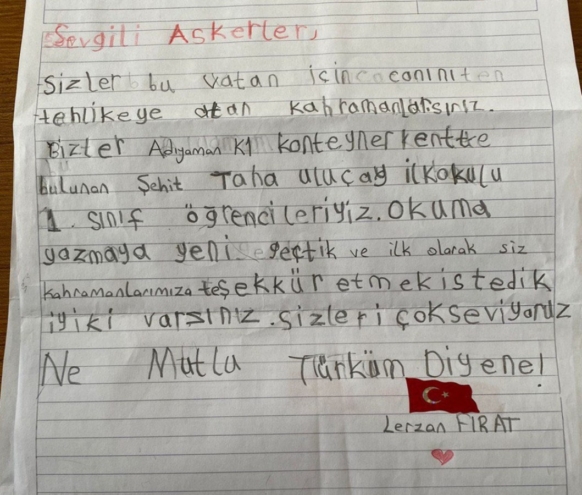 Sevgili Askerler,
Sizler bu vatan için canını
tehlikeye atan kahramanlarsınız.
Bizler Adıyaman K1 konteyner kentte
bulunan Şehit Taha uluçay ilkokulu
1. sınıf öğrencileriyiz. Okuma
yazmaya yeni geçtik ve ilk olarak siz
kahramanlarımıza teşekkür etmek istedik
iyiki varsınız. sizleri çokseviyoruz
Ne Mutlu Türküm Diyene!
Lerzan FIRAT